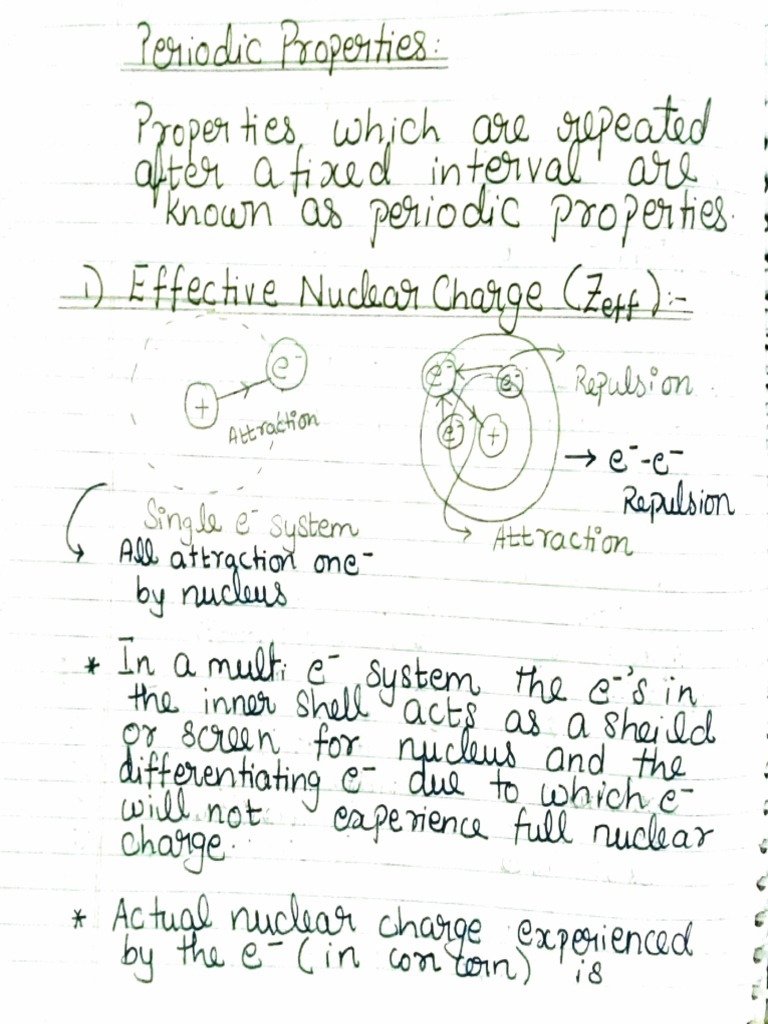 Periodic Properties:
Properties which are repeated
after a fixed interval are
known as periodic properties.
i) Effective Nuclear Charge (Zeff):-
e⁻
+
Attraction
e⁻
e⁻
e⁻
+
Repulsion
→ e⁻-e⁻
Repulsion
Attraction
Single e⁻ system
All attraction on e⁻
by nucleus
* In a multi e⁻ system the e⁻'s in
the inner shell acts as a sheild
or screen for nucleus and the
differentiating e⁻ due to which e⁻
will not experience full nuclear
charge.
* Actual nuclear charge experienced
by the e⁻ (in con tern) is